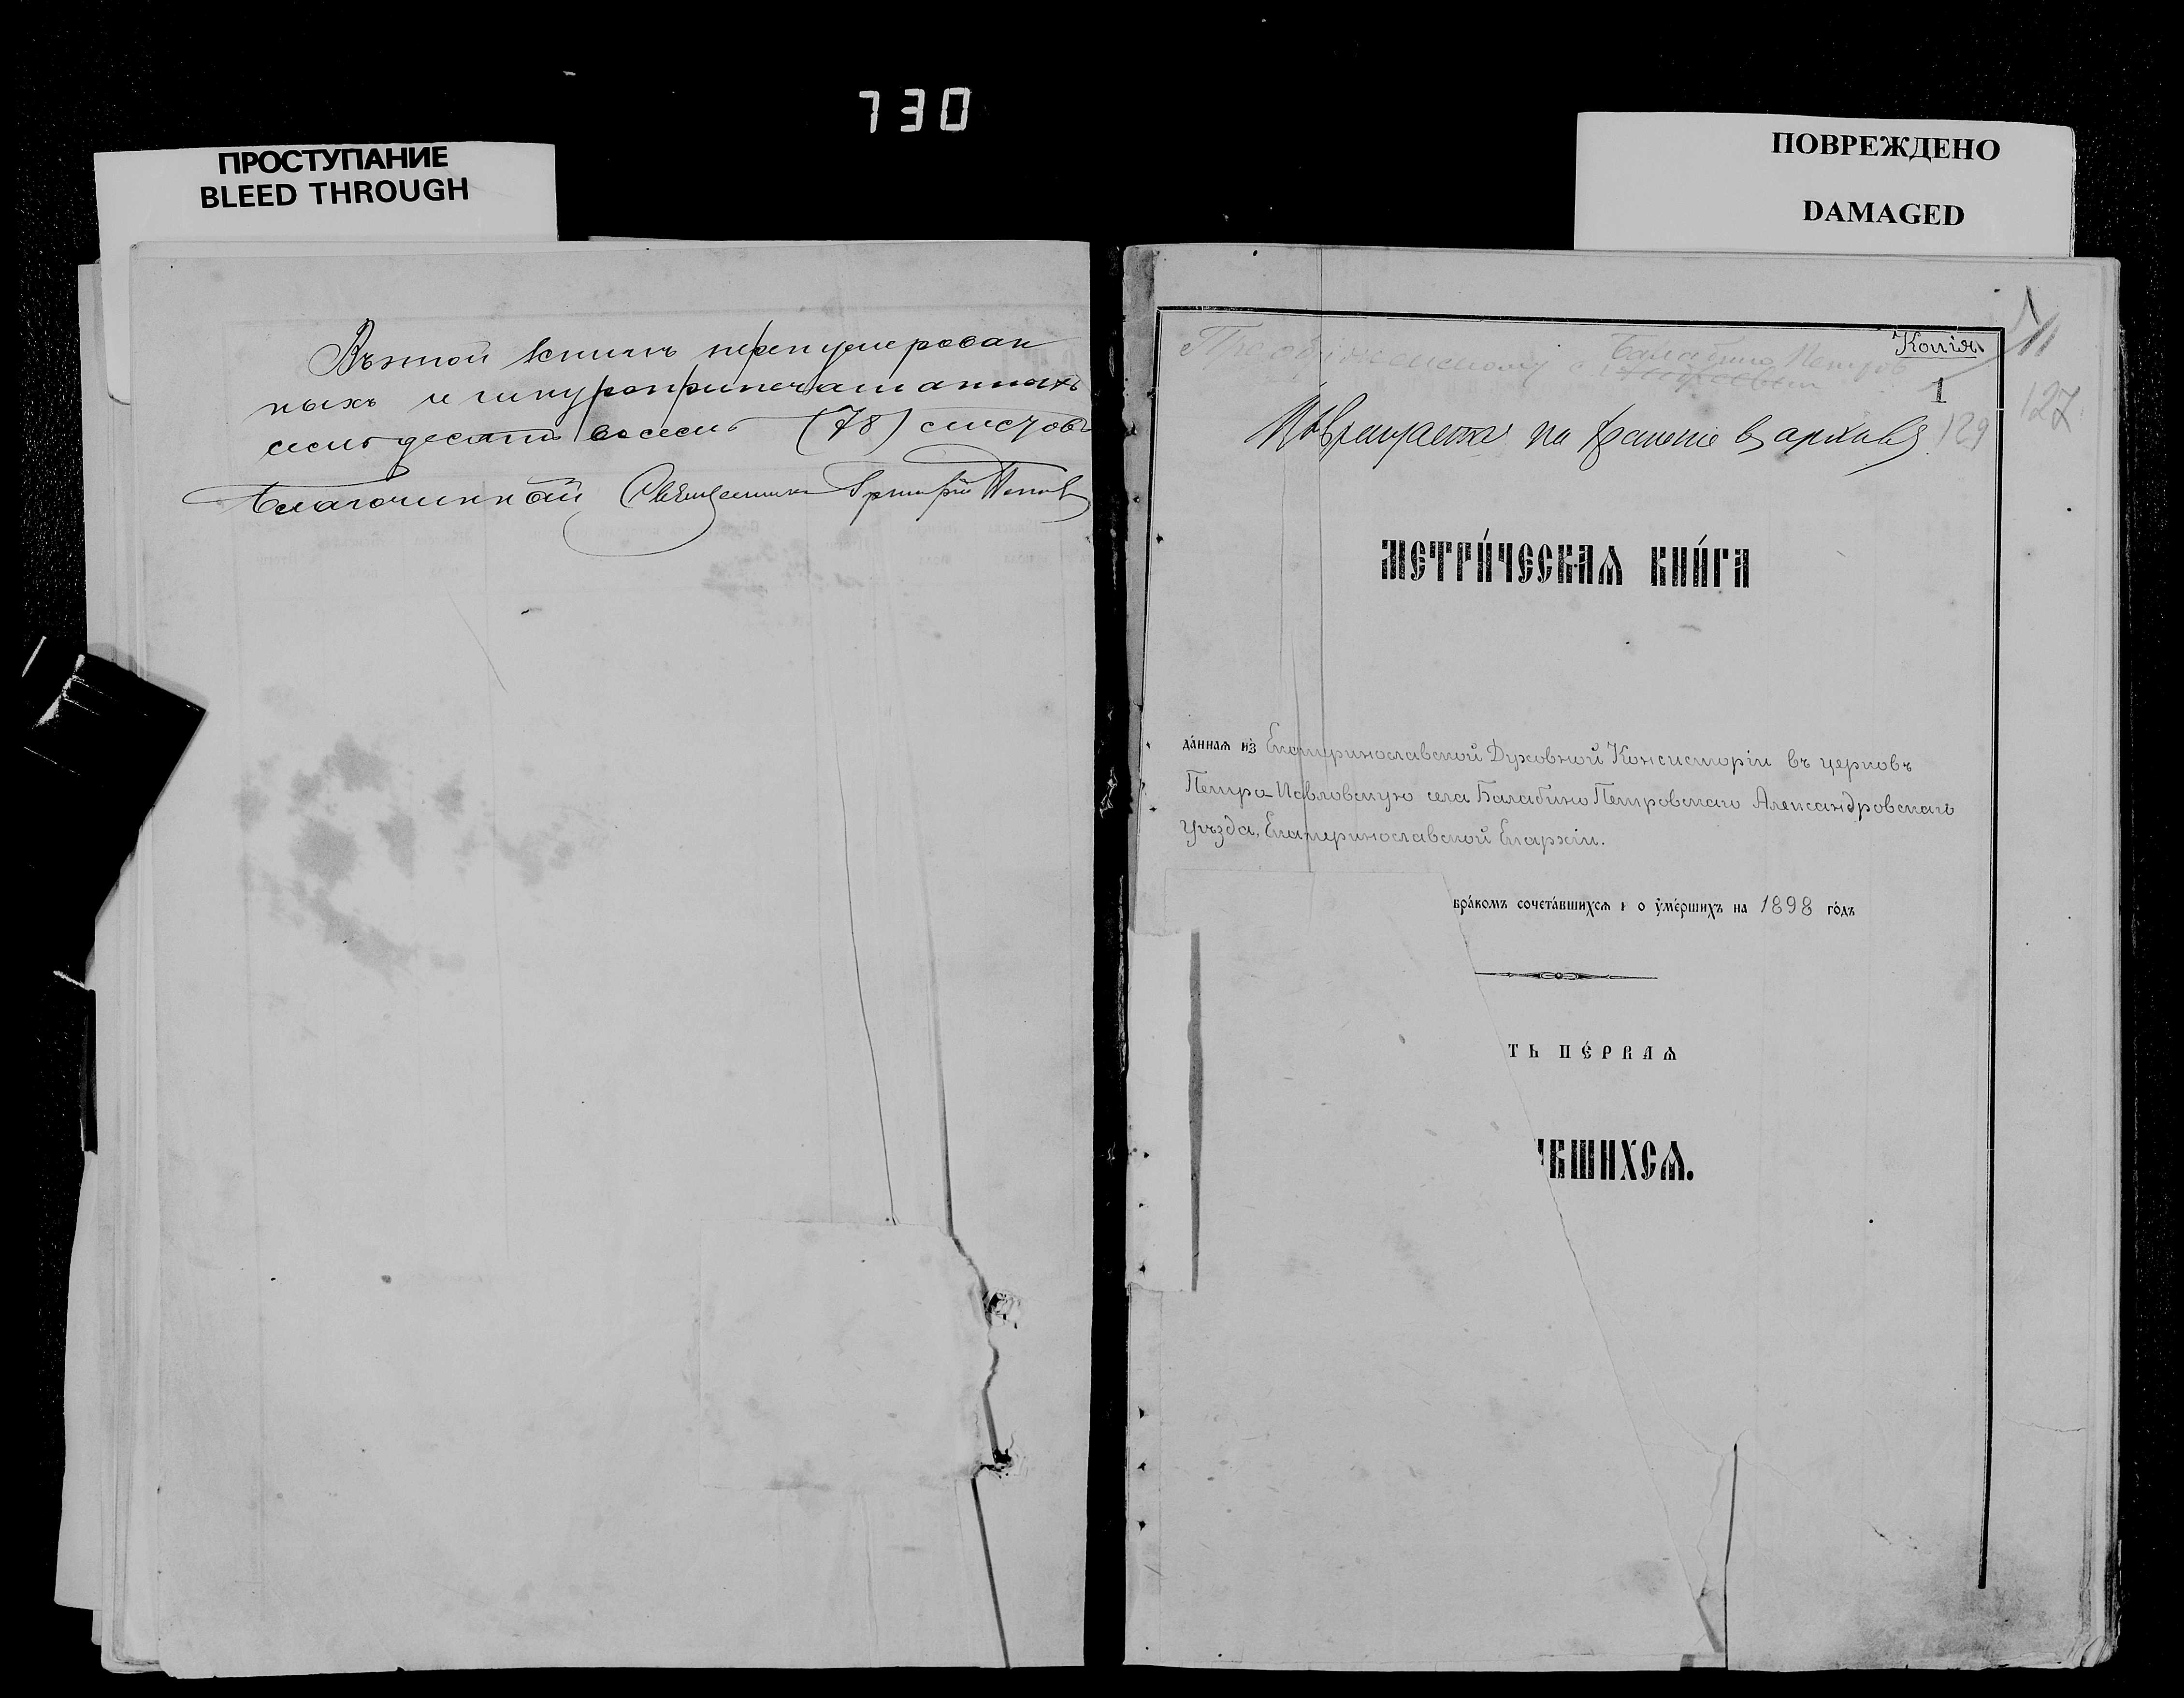 730
ПРОСТУПАНИЕ
BLEED THROUGH
ПОВРЕЖДЕНО
DAMAGED
Въ этой книгѣ перенумерован
ныхъ и шнуроприпечатанныхъ
семьдесятъ восемь (78) листовъ
Благочинный Священникъ Григорій Поповъ
Копія.
1
127
129
Возвращается на храненіе въ архивъ
МЕТРИ́ЧЕСКАѦ КНИ́ГА
да́ннаѧ из̾ Екатеринославской Духовной Консисторіи въ церковь
Петро-Павловскую села Балабино Петровскаго Александровскаго
уѣзда, Екатеринославской Епархіи.
бра́комъ сочета́вшихсѧ и о ᲂуме́ршихъ на 1898 го́дъ
ТЬ ПЕ́РВАѦ
ВШИХСѦ.